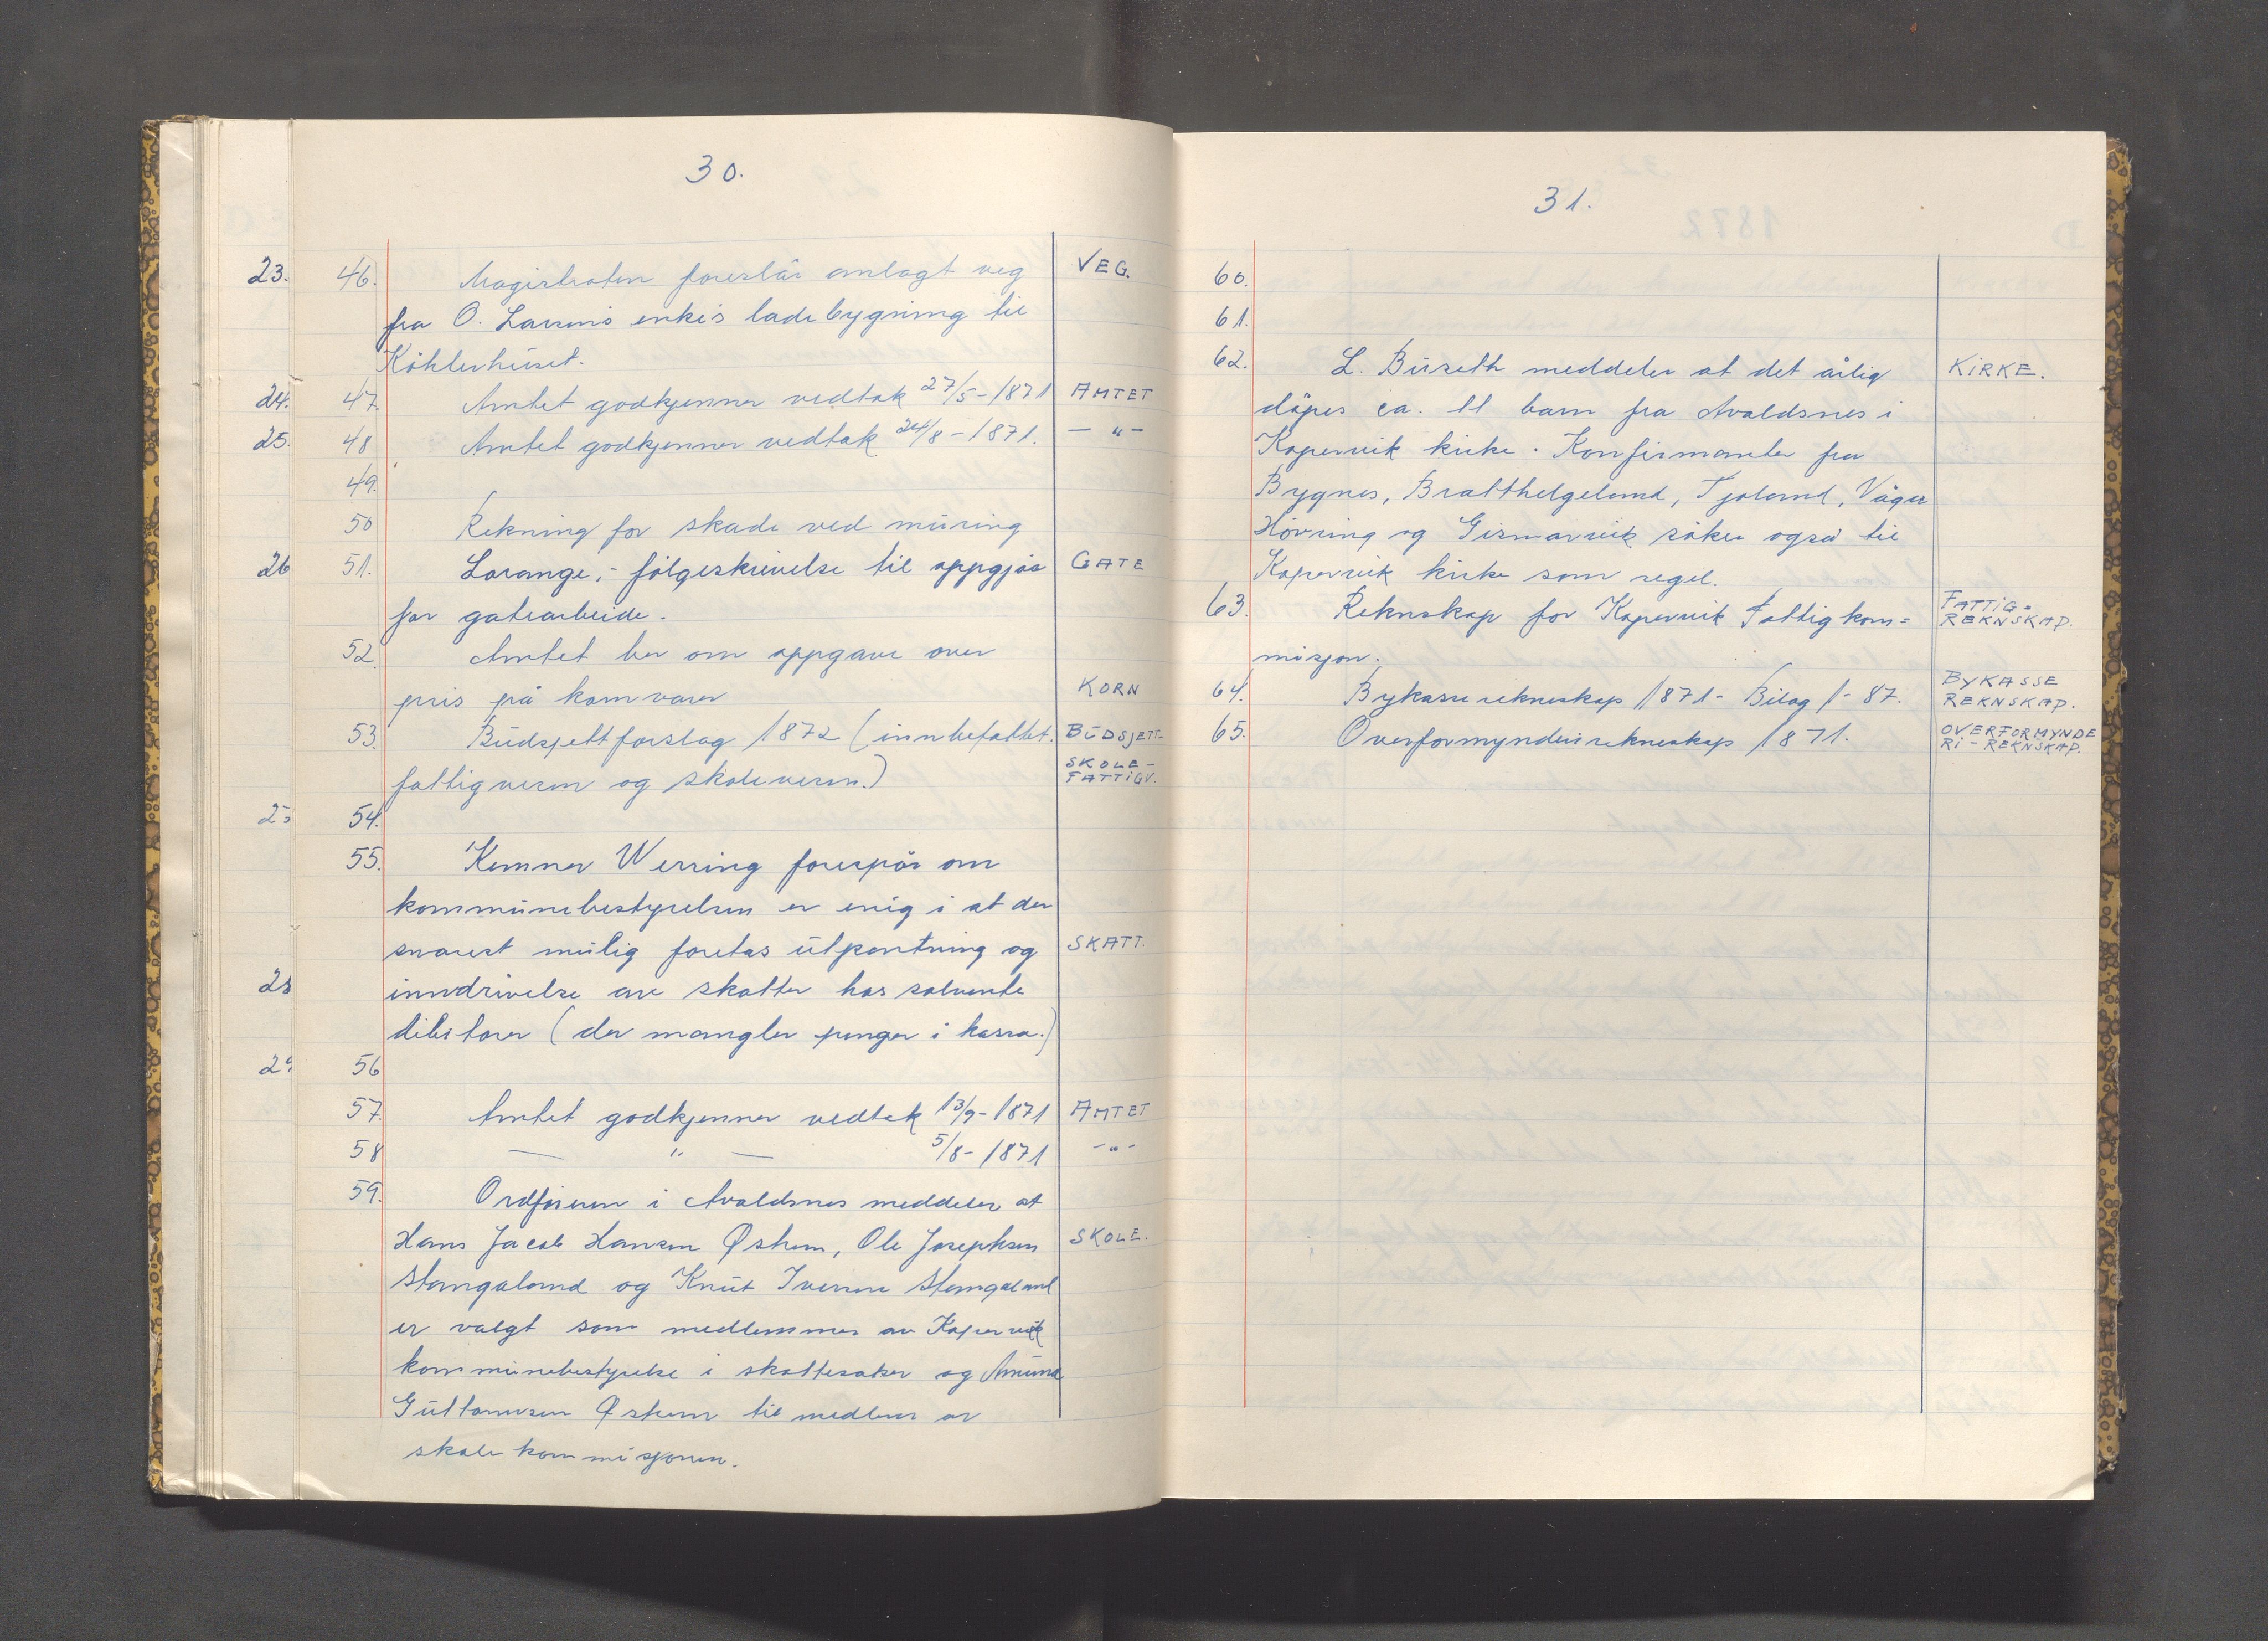 30.
23. 46. Magistraten foreslår anlagt veg VEG.
fra O. Larsens enkes ladebygning til
Köhlerhuset.
24. 47. Amtet godkjenner vedtak 27/5-1871 AMTET
25. 48 Amtet godkjenner vedtak 24/8-1871. — " —
49.
50 Rekning for skade ved muring
26 51. Lorange, - følgeskrivelse til oppgjør GATE
for gatearbeide.
52. Amtet ber om oppgave over
pris på kornvarer KORN
53. Budsjettforslag 1872 (innbefattet. BUDSJETT-
fattigvesen og skolevesen.) SKOLE-
FATTIGV.
54.
55. Kemner Werring forespør om
kommunebestyrelsen er enig i at der
snarest mulig foretas utpantning og SKATT.
28 inndrivelse av skatter hos solvente
debitorer (der mangler penger i kassa.)
56
57. Amtet godkjenner vedtak 13/9-1871 AMTET
58 — " — 5/8-1871 - " -
59. Ordføreren i Avaldsnes meddeler at
Hans Jacob Hansen Østrem, Ole Josephsen SKOLE.
Stangaland og Knut Iversen Stangaland
er valgt som medlemmer av Kopervik
kommunebestyrelse i skattesaker og Amund
Guttormsen Østrem til medlem av
skolekommisjonen.
31.
60.
61.
62. L. Buseth meddeler at det årlig KIRKE.
døpes ca. 11 barn fra Avaldsnes i
Kopervik kirke. Konfirmanter fra
Bygnes, Bratthelgeland, Tjoland, Våger
Hövring og Gismarvik søker også til
Kopervik kirke som regel.
63. Reknskap for Kopervik Fattigkom= FATTIG=
REKNSKAP.
misjon.
64. Bykasserekneskap 1871- Bilag 1-87. BYKASSE
REKNSKAP.
65. Overformynderirekneskap 1871. OVERFORMYNDE
RI-REKNSKAP.